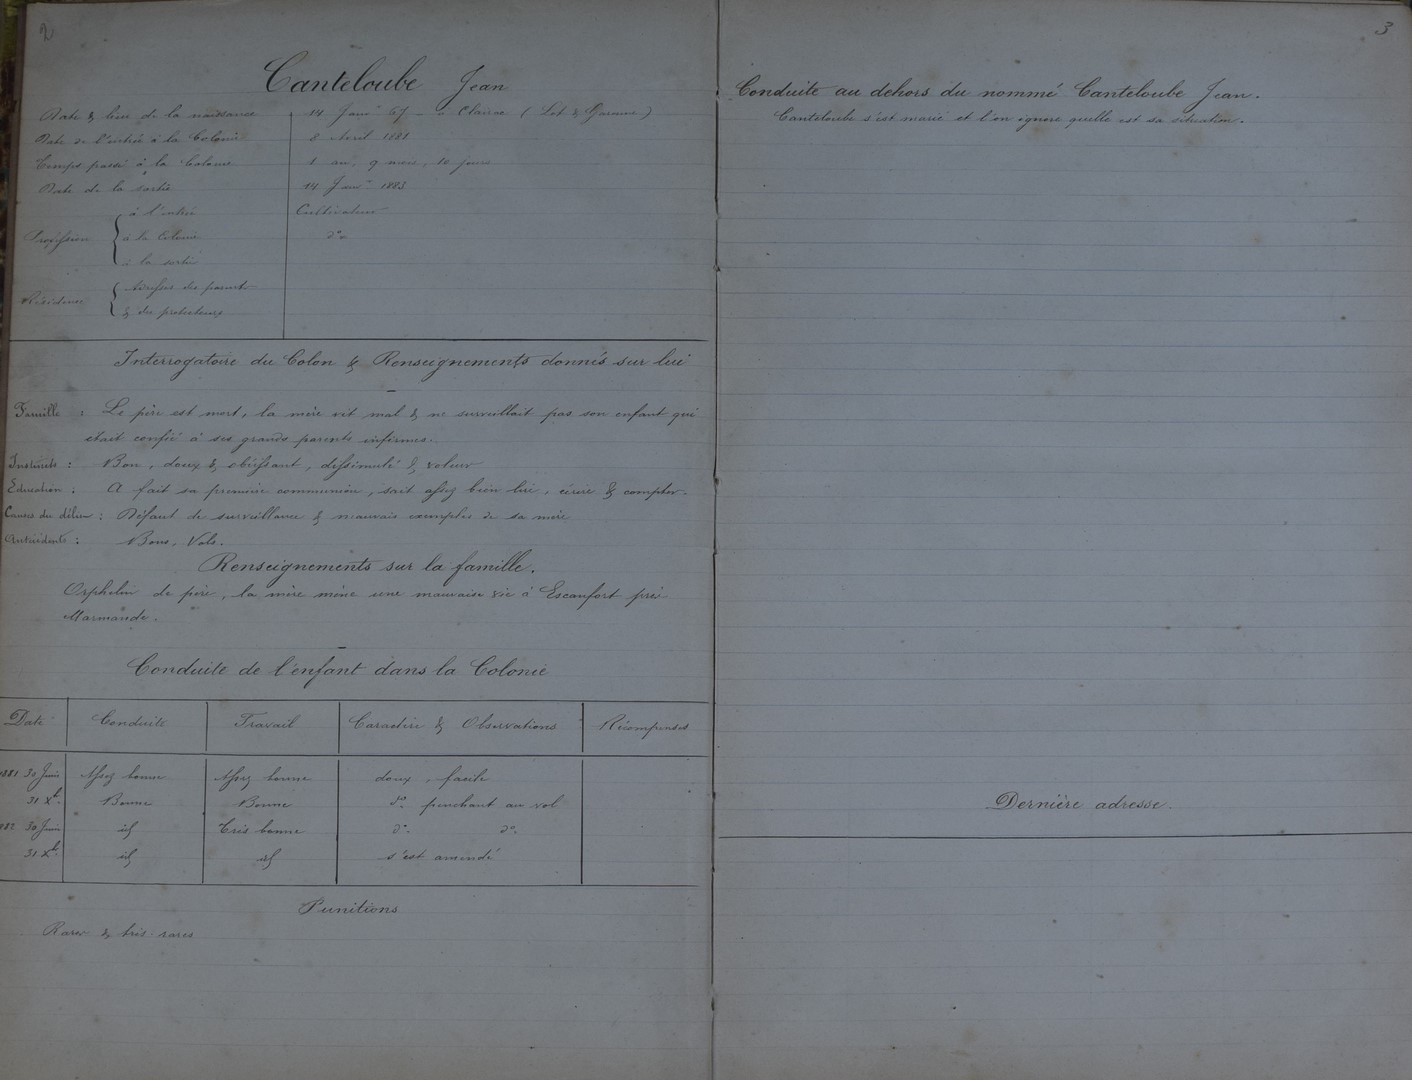 2
Canteloube Jean
Date & lieu de la naissance 14 Janv. 67 - à Clairac (Lot & Garonne)
Date de l'entrée à la Colonie 8 Avril 1881
Temps passé à la Colonie 1 an, 9 mois, 10 jours
Date de la sortie 14 Janv. 1883
à l'entrée Cultivateur
Profession à la Colonie do
à la sortie
Adresses des parents
Résidence
& des protecteurs
Interrogatoire du Colon & Renseignements donnés sur lui
Famille : Le père est mort, la mère vit mal & ne surveillait pas son enfant qui
était confié à ses grands parents infirmes.
Instincts : Bon, doux & obéissant, dissimulé & voleur
Education : A fait sa première communion, sait assez bien lire, écrire & compter.
Causes du délit : Défaut de surveillance & mauvais exemples de sa mère
Antécédents : Bons, Vols.
Renseignements sur la famille.
Orphelin de père, la mère mène une mauvaise vie à Escanfort près
Marmande.
Conduite de l'enfant dans la Colonie
Date Conduite Travail Caractère & Observations Récompenses
1881 30 Juin Assez bonne Assez bonne doux, facile
31 Xbre Bonne Bonne do penchant au vol
1882 30 Juin id Très bonne do do
31 Xbre id id s'est amendé
Punitions
Rares & très rares
3
Conduite au dehors du nommé Canteloube Jean.
Canteloube s'est marié et l'on ignore quelle est sa situation.
Dernière adresse.